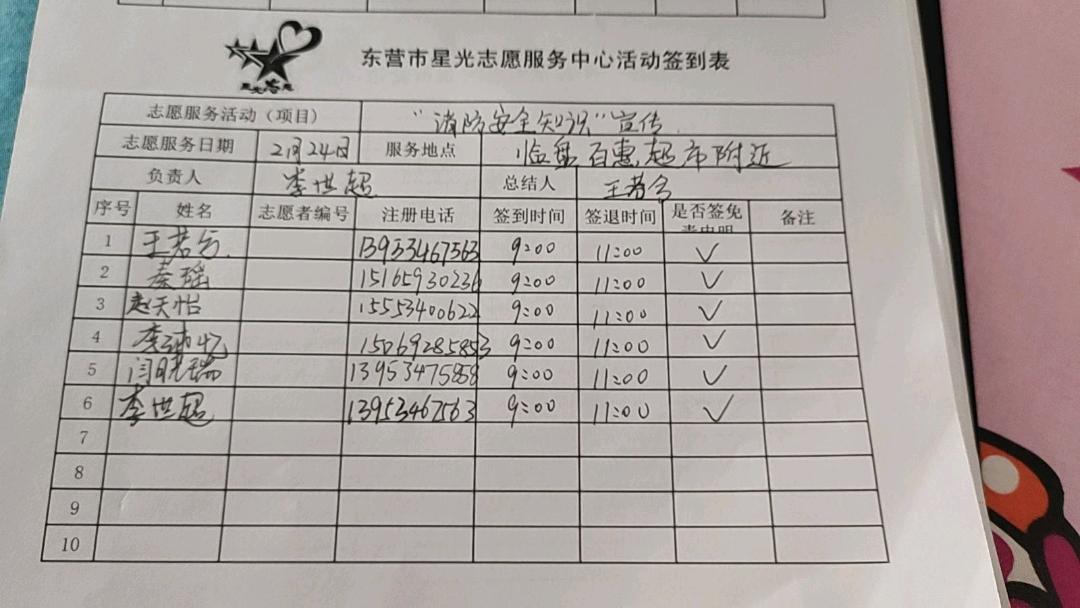 东营市星光志愿服务中心活动签到表
志愿服务活动（项目） “消防安全知识”宣传
志愿服务日期 2月24日 服务地点 临盘百惠超市附近
负责人 李世超 总结人 王若兮
序号 姓名 志愿者编号 注册电话 签到时间 签退时间 是否签免责申明 备注
1 王若兮 13953467563 9:00 11:00 ✓
2 秦瑶 15165930236 9:00 11:00 ✓
3 赵天怡 15553400622 9:00 11:00 ✓
4 15069285853 9:00 11:00 ✓
5 闫晓瑞 13953475858 9:00 11:00 ✓
6 李世超 13953467563 9:00 11:00 ✓
7
8
9
10